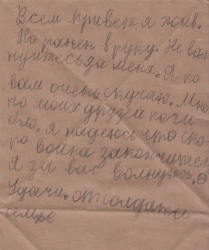 Всем привет я жив.
Но ранен в руку. Не вол
нуйтесь да меня. Я по
вам очень скучаю. Мно
го моих друзей поги
бло. я надеюсь что ско
ро война закончится
Я за вас волнуюсь.
Удачи.
семье